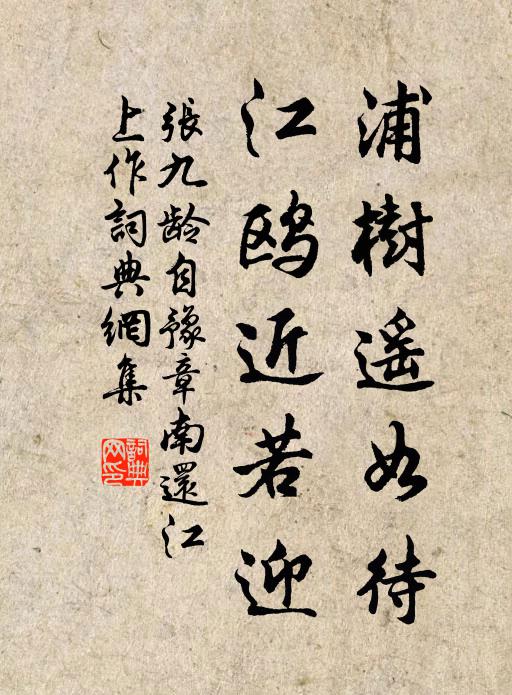 浦樹遥如待
江鸥近若迎
張九龄自豫章南還江
上作詞典網集
詞典网印